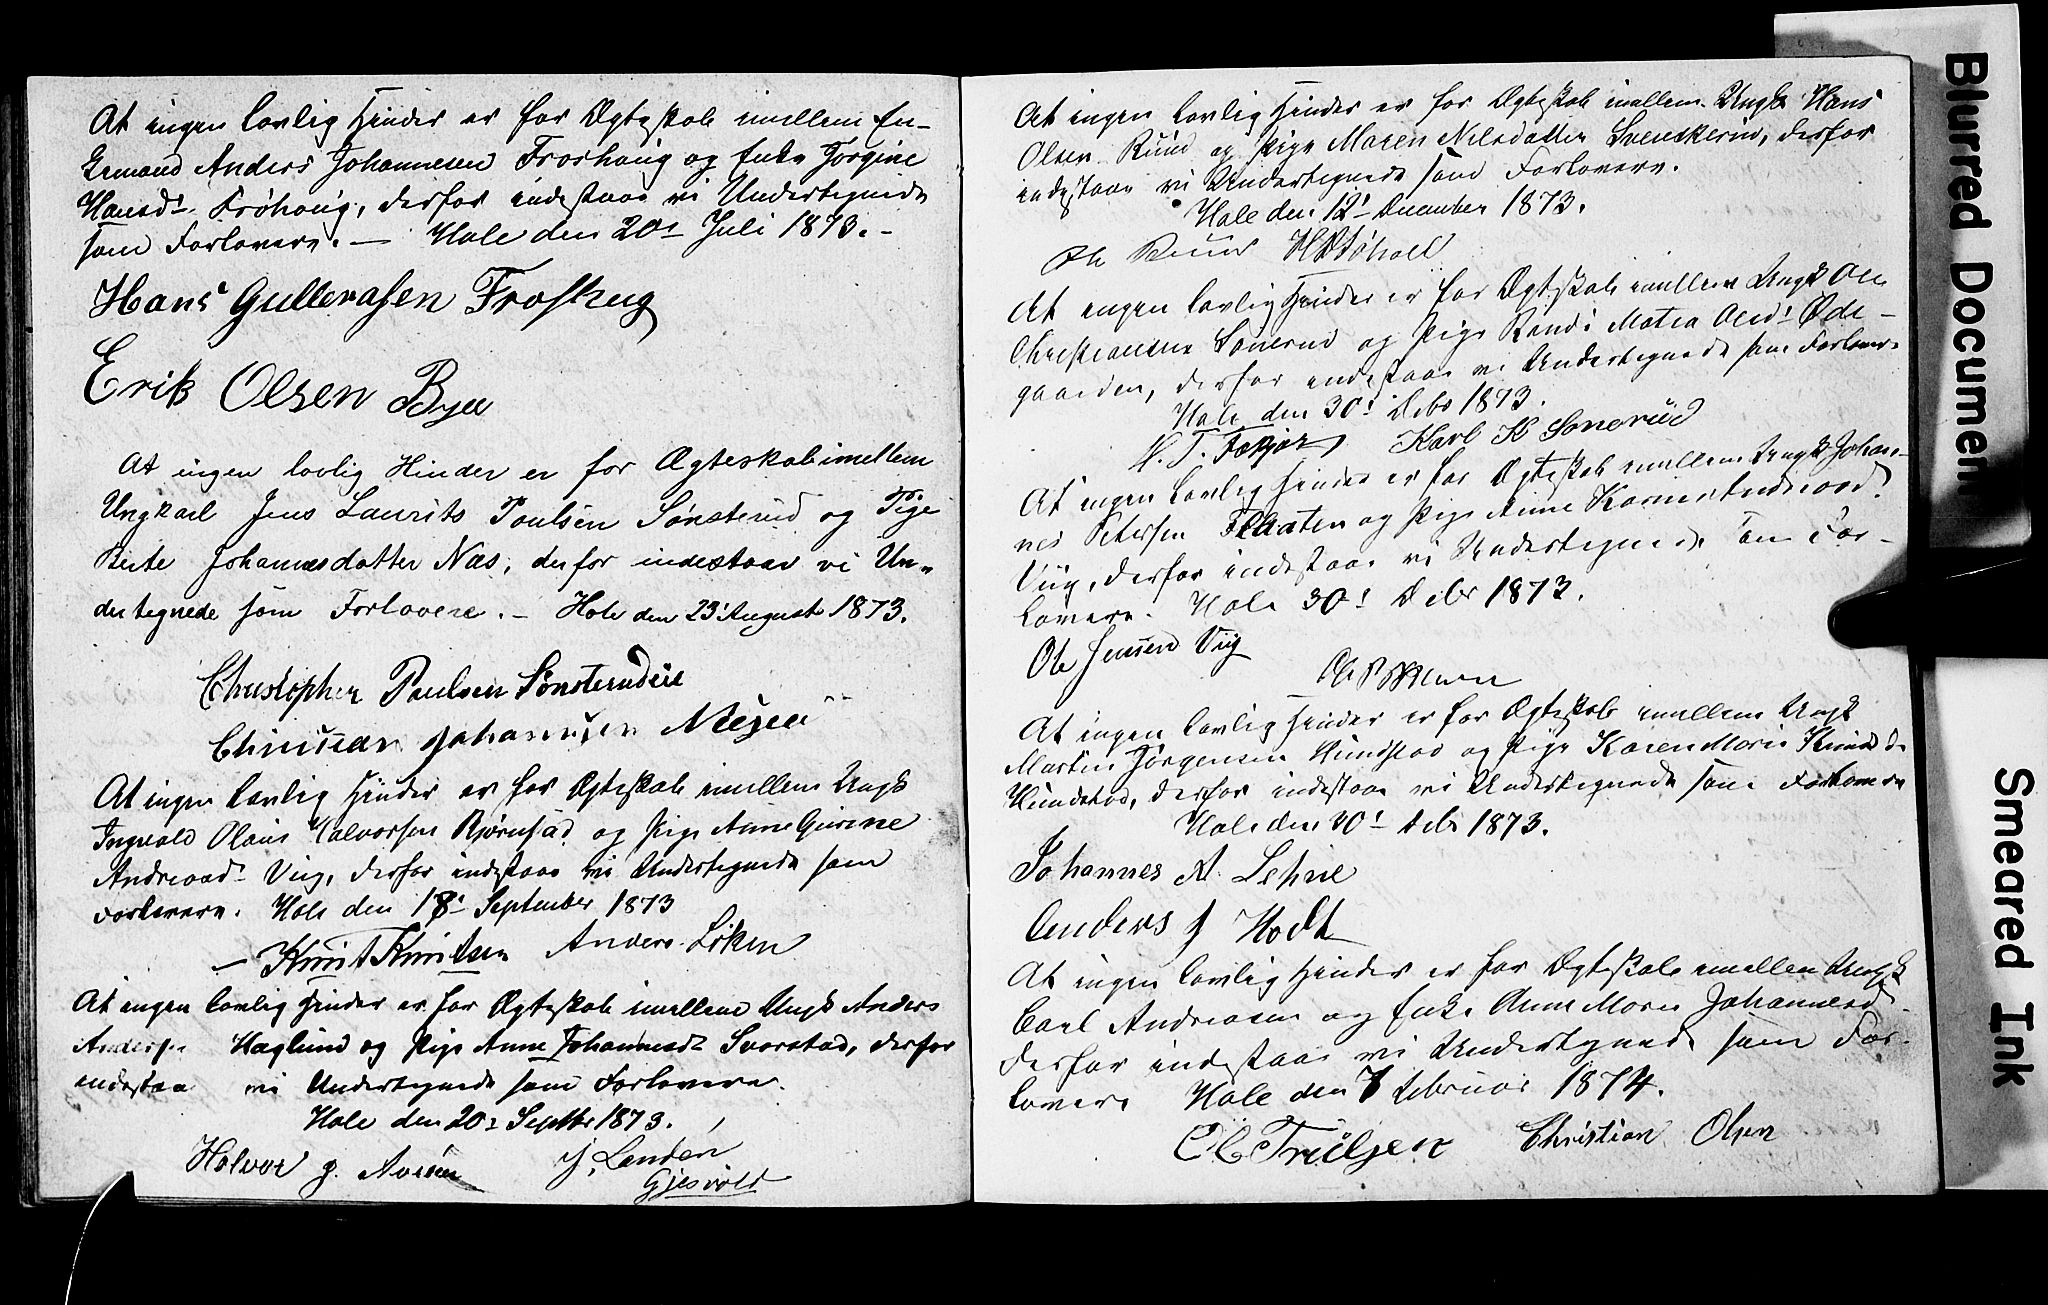 At ingen lovlig Hinder er for Ægteskab imellem En-
kemand Anders Johannesen Froshoug og Enke Jørgine
Hansd: Frøhoug, derfor indestaae vi Undertegnede
som Forlovere. — Hole den 20: Juli 1873. -
Hans Gullerasen Froshug
Erik Olsen Bye
At ingen lovlig Hinder er for Ægteskab imellem
Ungkarl Jens Laurits Poulsen Sønsterud og Pige
Berte Johannesdatter Næs, derfor indestaae vi Un-
dertegnede som Forlovere. - Hole den 23' August 1873.
Christopher Paulsen Sønsterudeie
Christian Johannesen
At ingen lovlig Hinder er for Ægteskab imellem Ungk
Ingvald Olaus Halvorsen Bjørnstad og Pige Anne Gurine
Andreasd: Viig, derfor indestaae vi Undertegnede som
Forlovere. Hole den 18' September 1873
— Knut Knutsen Anders Løken
At ingen lovlig Hinder er for Ægteskab imellem Ungk Anders
Andersen Haglund og Pige Anne Johannesd: Svarstad, derfor
indestaa vi Undertegnede som Forlovere.
Hole den 20: Septbr 1873.
Halvor J.
Gjesvold
At ingen lovlig Hinder er for Ægteskab imellem Ungk Hans
Olsen Ruud og Pige Maren Nilsdatter Svenskerud, derfor
indestaae vi Undertegnede som Forlovere.
Hole den 12' December 1873.
Ole Ruud
At ingen lovlig Hinder er for Ægteskab imellem Ungk Ole
Christiansen Sønerud og Pige Randi Matea Olsd: Øde-
gaarden, derfor indestaae vi Undertegnede som Forlovere
Hole den 30' Debr 1873.
H. T. Fekjær Karl K Sonerud
At ingen lovlig Hinder er for Ægteskab imellem Ungk Johan-
nes Petersen Flaaten og Pige Anne Karine Andreasd:
Viig, derfor indestaae vi Undertegnede som For-
lovere. Hole 30' Debr 1873.
Ole Jensen Viig
At ingen lovlig Hinder er for Ægteskab imellem Ungk
Martin Jørgensen Hundstad og Pige Karen Marie Knudsd:
Hundstad, derfor indestaae vi Undertegnede som Forlovere
Hole den 30' Debr 1873.
Johannes A. Lehne
Anders J Hodt
At ingen lovlig Hinder er for Ægteskab imellem Ungk
Carl Andreasen og Enke Anne Marie Johannesd
derfor indestaae vi Undertegnede som For-
lovere Hole den 7 Februar 1874.
Trulsen Christian Olsen
Blurred Document
Smeared Ink